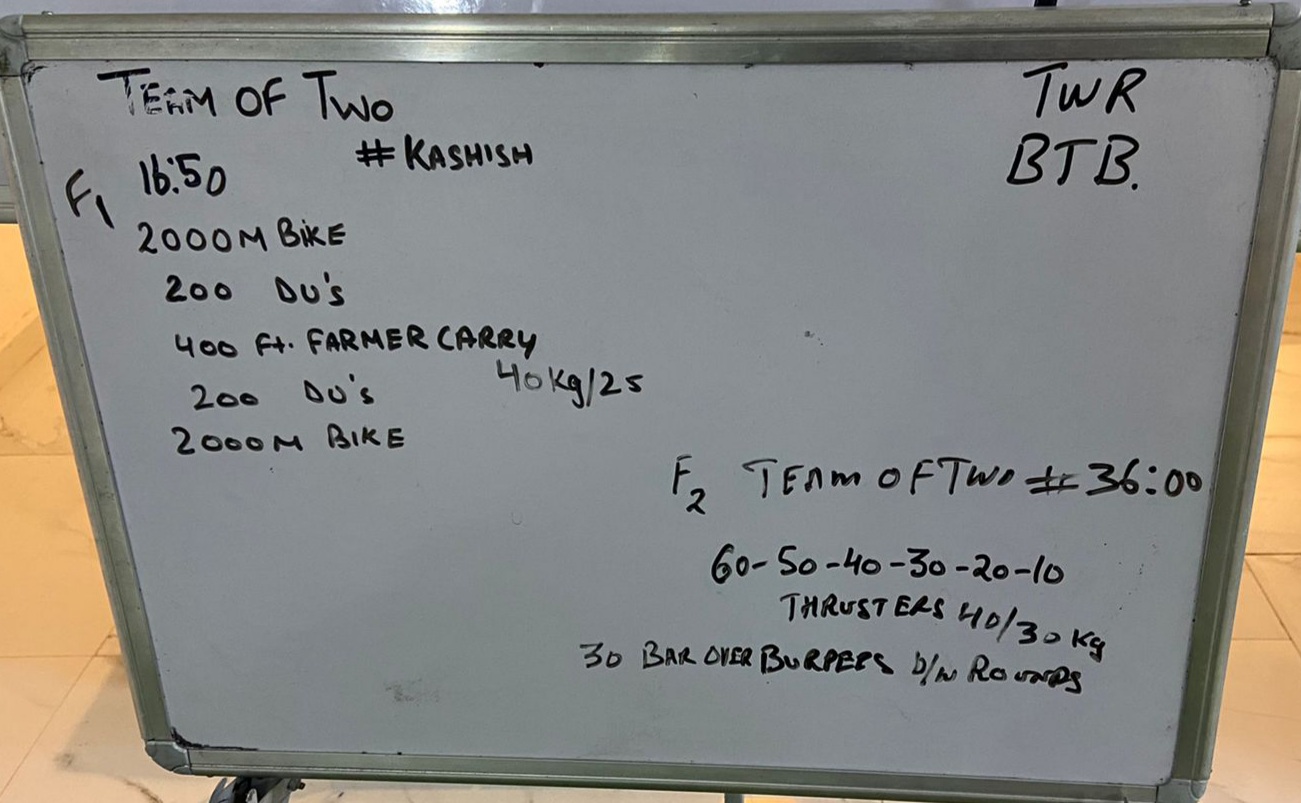 TEAM OF TWO
# KASHISH
F1 16:50
2000M BIKE
200 DU's
400 Ft. FARMER CARRY
40kg/25
200 DU's
2000M BIKE
TWR
BTB.
F2 TEAM OF TWO # 36:00
60-50-40-30-20-10
THRUSTERS 40/30 kg
30 BAR OVER BURPEES b/w ROUNDS